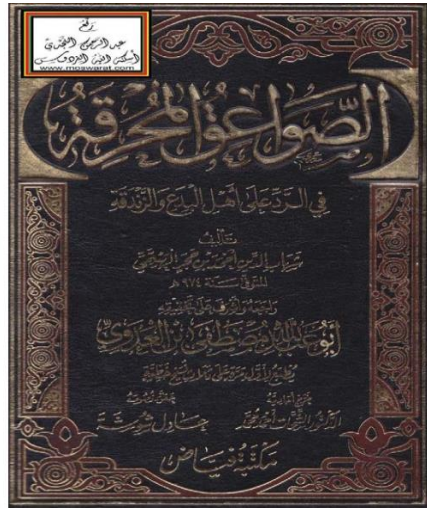 رَفْعُ
عبد الرحمن النجدي
أسكنه الله الفردوس
www.moswarat.com
الصَّوَاعِقُ المُحْرِقَةُ
في الرد على أهل البدع والزندقة
تأليف
شهاب الدين أحمد بن حجر الهيتمي
المتوفى سنة ٩٧٤ هـ
راجعه وأشرف على تحقيقه
أبو عبد الله مصطفى بن العدوي
يطبع لأول مرة على
الشحات أحمد محمد
عادل شوشة
مكتبة فياض